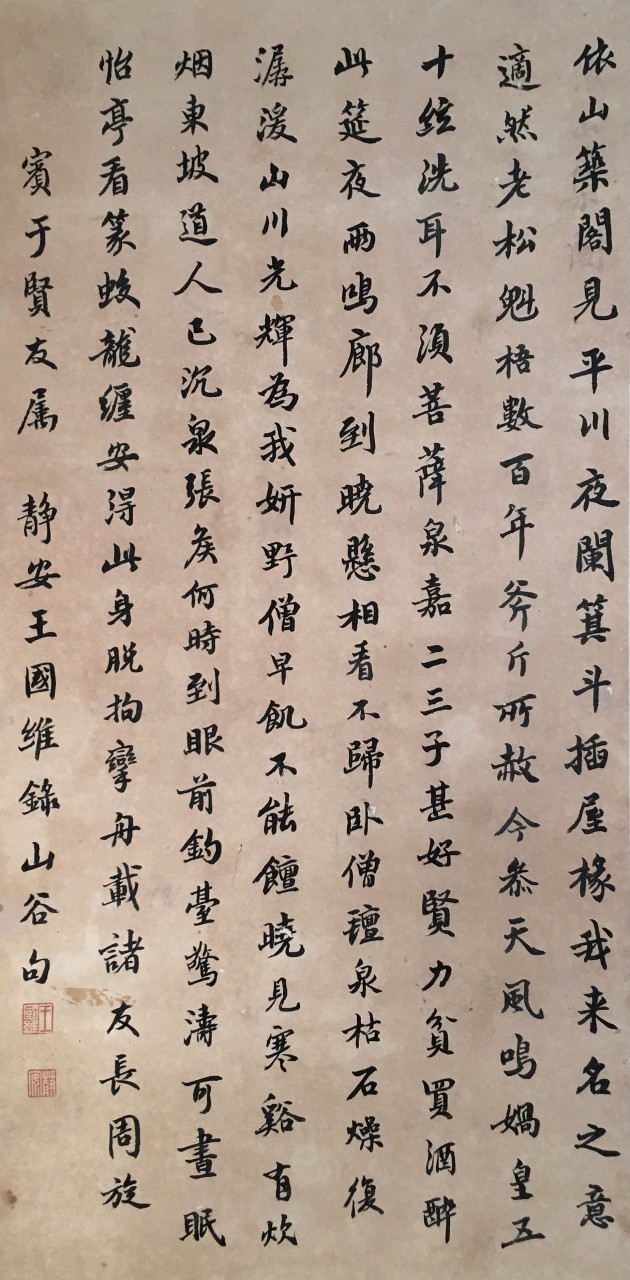 依山築閣見平川夜闌箕斗插屋椽我来名之意
適然老松魁梧數百年斧斤所赦今叅天風鳴媧皇五
十絃洗耳不須菩薩泉嘉二三子甚好賢力貧買酒醉
此筵夜雨鳴廊到曉懸相看不歸卧僧氊泉枯石燥復
潺湲山川光輝為我妍野僧早飢不能饘曉見寒谿有炊
烟東坡道人已沉泉張矦何時到眼前釣臺驚濤可晝眠
怡亭看篆蛟龍纏安得此身脱拘攣舟載諸友長周旋
賓于賢友属 静安王國維錄山谷句